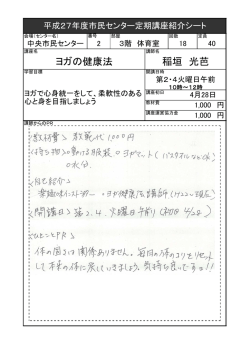 平成27年度市民センター定期講座紹介シート
会場(センター名) 番号 部屋 回数 定員
中央市民センター 2 3階 体育室 18 40
講座名 講師名
ヨガの健康法 稲垣 光芭
学習目標 開講日時
第2・4火曜日午前
10時~12時
ヨガで心身統一をして、柔軟性のある
心と身を目指しましょう
講座初日 4月28日
教材費 1,000 円
講座運営協力金 1,000 円
講師からのPR
<教材費> 教載代 1000円
<持ち物> 動ける服装 ・ヨガマット (バスタオルなど)
・水分
<自己紹介>
・ヨガ健康法講師
<開講日> 第2.4. 火曜日 午前 (初日 4/28)
<ひとことPR>
体の固さは関係ありません。毎日の体のコリをリセット
して本来の体に戻していきましょう。気持ち良いですヨ!!